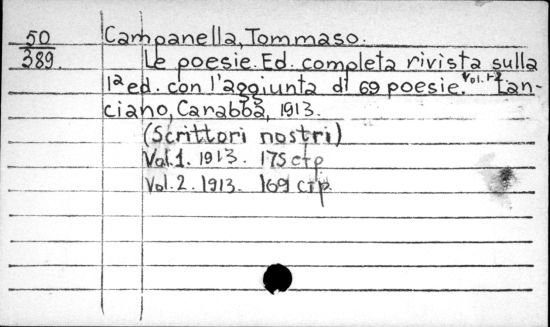 50 Campanella, Tommaso.
389 Le poesie. Ed. completa rivista sulla
1ª ed. con l'aggiunta di 69 poesie. Vol. 1-2. Lan-
ciano, Carabba, 1913.
(Scrittori nostri)
Vol. 1. 1913. 175 стр
Vol. 2. 1913. 169 стр.